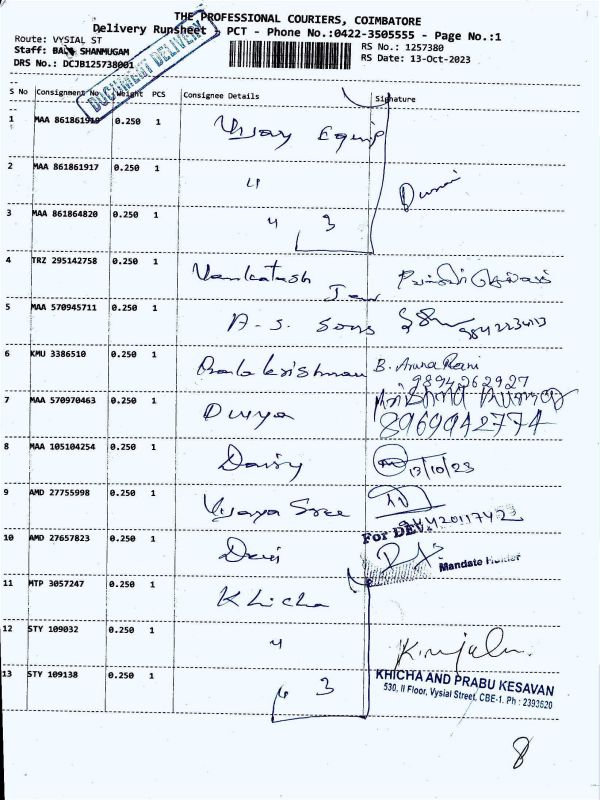 THE PROFESSIONAL COURIERS, COIMBATORE
Delivery Runsheet PCT - Phone No.:0422-3505555 - Page No.:1
Route: VYSIAL ST
RS No.: 1257380
Staff: BALA SHANMUGAM
RS Date: 13-Oct-2023
DRS No.: DCJB125738001
DOCUMENT DELIVERY
S No Consignment No Weight PCS Consignee Details Signature
1 MAA 861861919 0.250 1 Vijay Equip
2 MAA 861861917 0.250 1 "
3 MAA 861864820 0.250 1 " 3
4 TRZ 295142758 0.250 1 Venkatesh
5 MAA 570945711 0.250 1 A.S. Sons
6 KMU 3386510 0.250 1 Balakrishnan B. Aruna Rani
9894262927
7 MAA 570970463 0.250 1 Divya
8969042774
8 MAA 105104254 0.250 1 Daisy 13/10/23
9 AMD 27755998 0.250 1 Vijaya Sree
10 AMD 27657823 0.250 1 Devi For DEV
Mandate Holder
11 MTP 3057247 0.250 1 Khicha
12 STY 109032 0.250 1 "
13 STY 109138 0.250 1 " 3
KHICHA AND PRABU KESAVAN
530, II Floor, Vysial Street, CBE-1. Ph : 2393620
8